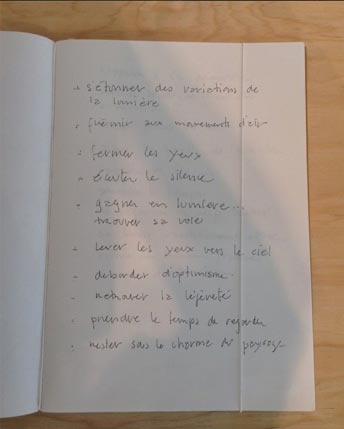 - s'étonner des variations de
la lumière
- frémir aux mouvements d'air
- fermer les yeux
- écouter le silence
- gagner en lumière...
trouver sa voie
- lever les yeux vers le ciel
- déborder d'optimisme.
- retrouver la légèreté
- prendre le temps de regarder
- rester sous le charme du paysage